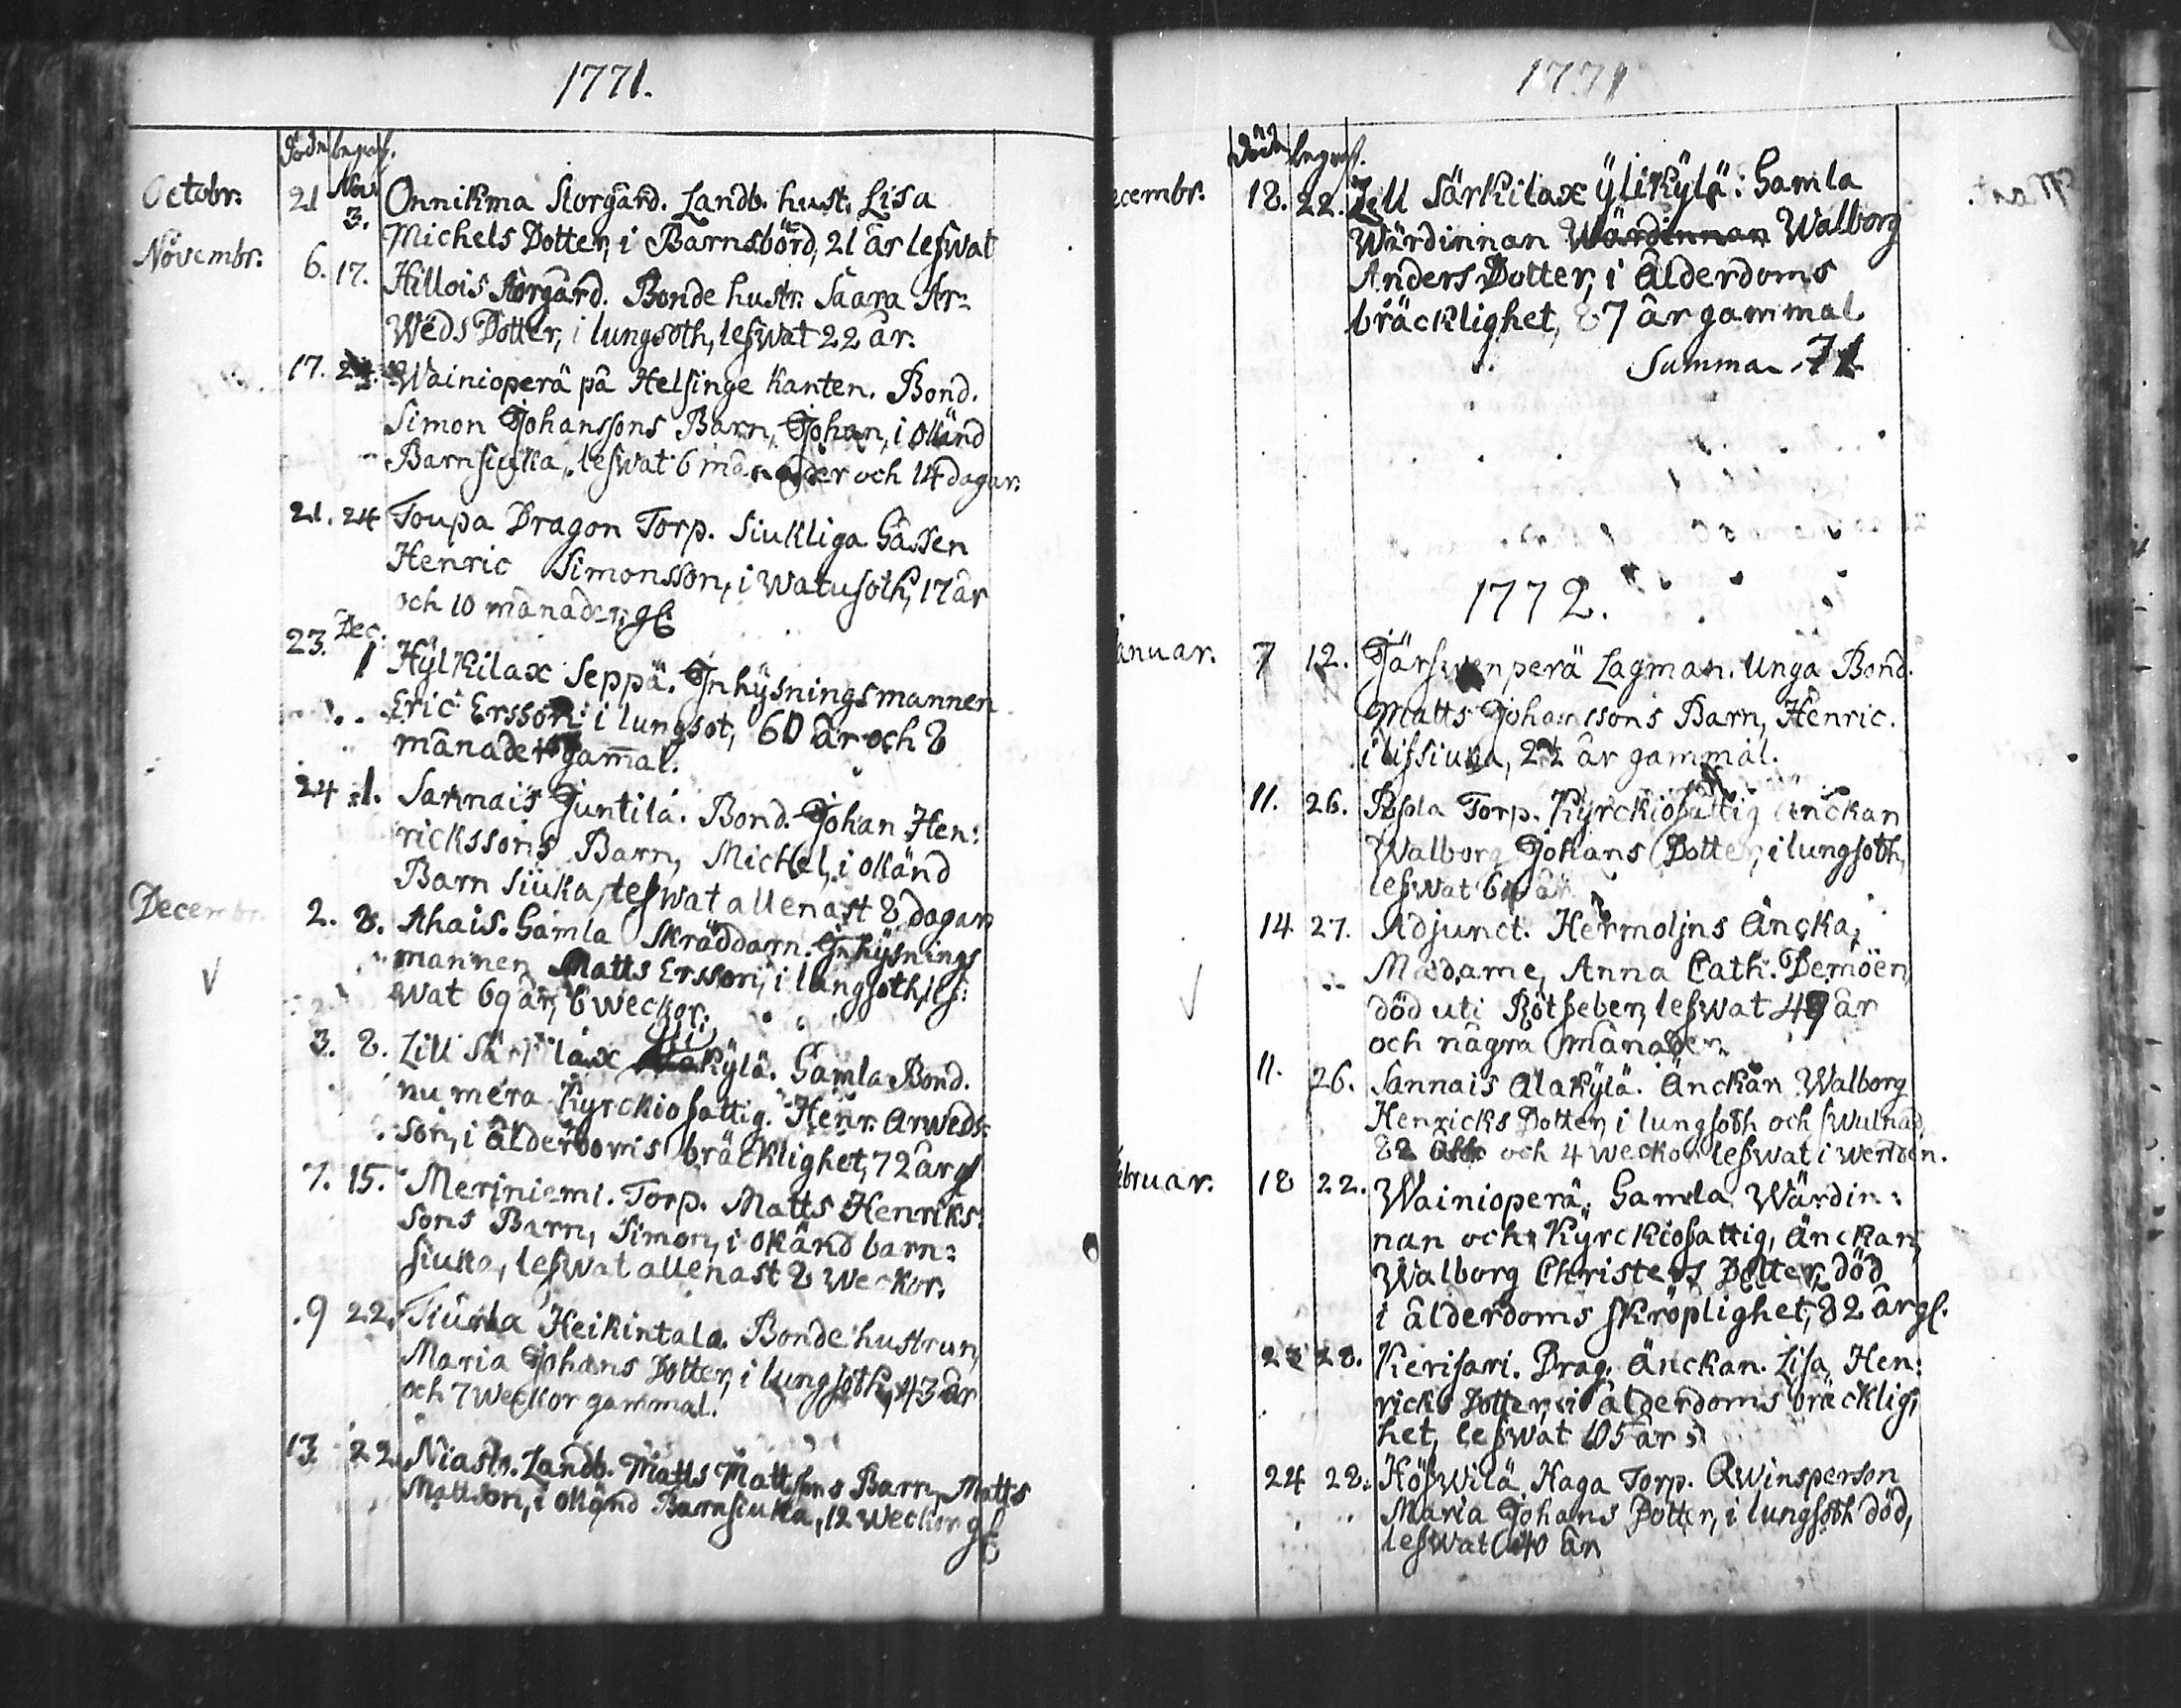 1771.
Död. begraf.
Octobr. 21 Nov. 3. Onnikma Storgård. Landb. hust. Lisa
Michels Dotter, i Barnsbörd, 21 år lefwat
Novembr. 6. 17. Hillois Storgård. Bonde hustr. Saara Ar=
weds Dotter, i lungsoth, lefwat 22 år.
17. 24. Wainioperä på Helsinge kanten. Bond.
Simon Johanssons Barn, Johan, i okänd
Barnsiuka, lefwat 6 månader och 14 dagar.
21. 24 Toupa Dragon Torp. Siukliga Gåssen
Henric Simonsson, i Watusoth, 17 år
och 10 månader, gl
23. Dec. 1 Hylkilax Seppä. Inhysningsmannen
Eric Ersson i lungsot, 60 år och 8
månader gam̄al.
24 1. Sannais Juntila. Bond. Johan Hen=
rickssons Barn, Michel, i okänd
Barn siuka, lefwat allenast 8 dagar
Decembr. 2. 8. Ahais. Gamla Skräddarn. Inhysnings
mannen Matts Ersson, i lungsoth, lef=
wat 69 år, 6 weckor.
3. 8. Lill Särkilax Ylikylä. Gamla Bond.
numera Kyrckiofattig. Henr. Arweds=
son, i ålderdoms bräcklighet, 72 år gl
7. 15. Merjniemi. Torp. Matts Henriks=
sons Barn, Simon, i okänd barn=
siuka, lefwat allenast 8 weckor.
9 22. Heikintala. Bonde hustrun,
Maria Johans Dotter, i lungsoth, 43 år
och 7 weckor gammal.
13 22. Niasto. Landb. Matts Mattsons Barn, Matts
Mattson, i okänd Barnsiuka, 12 weckor gl
1771
Död begraf.
ecembr. 18. 22. Lill Särkilax Ylikylä: Gamla
Wärdinnan Wärdinnan Walborg
Anders Dotter, i ålderdoms
bräcklighet, 87 år gammal
Summa 71
1772.
anuar. 7 12. Järfwenperä Lagman. Unga Bond.
Matts Johanssons Barn, Henric.
i lissiuka, 2½ år gammal.
11. 26. Torp. Kyrckiofattig Enckan
Walborg Johans Dotter, i lungsoth,
lefwat år
14 27. Adjunct. Hermolins Äncka,
Madame, Anna Cath. Demoen,
död uti Rötfeber, lefwat 49 år
och några månader
11. 26. Sannais Alakylä. Änckan Walborg
Henricks Dotter, i lungsoth och swulnad,
82 år och 4 weckor lefwat i werlden.
ebruar. 18 22. Wainioperä. Gamla Wärdin=
nan och Kyrckiofattig, Änckan,
Walborg Christers Dotter, död
i ålderdoms skröplighet, 82 år gl.
23 28. Kerisari. Drag. Änckan. Lisa Hen=
ricks Dotter, i ålderdoms bräcklig=
het, lefwat 105 år
24 28. Höswilä Haga Torp. Qwinsperson
Maria Johans Dotter, i lungsoth död,
lefwat 40 år